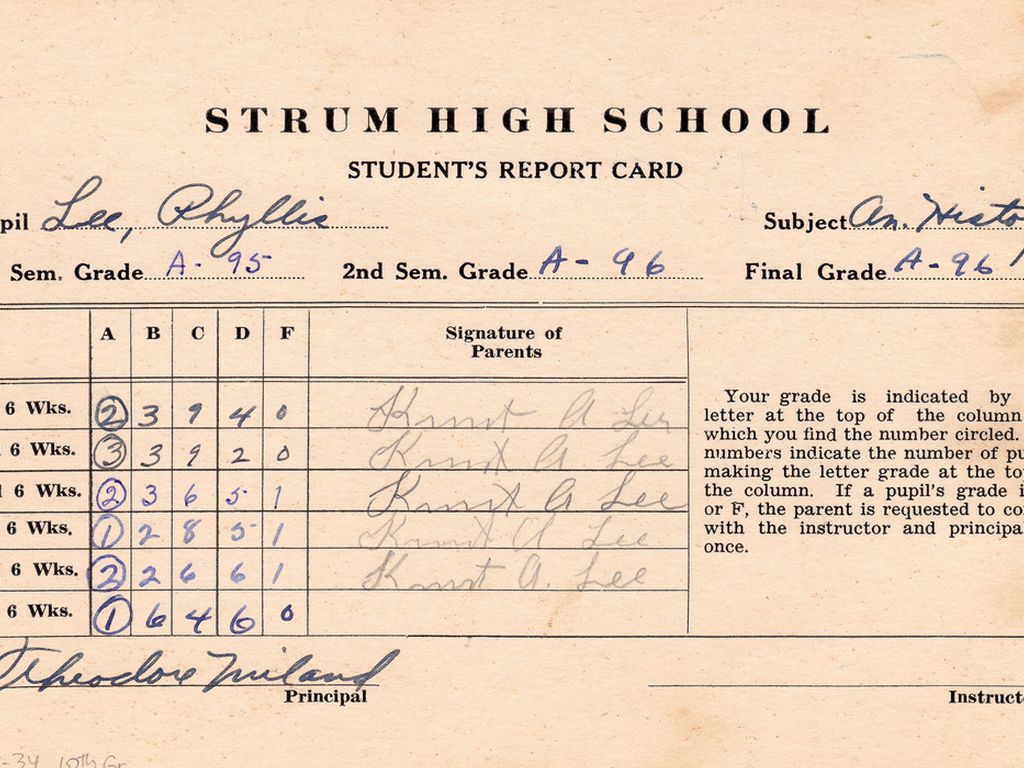 STRUM HIGH SCHOOL
STUDENT'S REPORT CARD
pil Lee, Phyllis Subject An. Histo
Sem. Grade A- 95 2nd Sem. Grade A- 96 Final Grade A-96
A B C D F Signature of Parents
6 Wks. 2 3 9 4 0 Knut A Lee
6 Wks. 3 3 9 2 0 Knut A Lee
6 Wks. 2 3 6 5 1 Knut A Lee
6 Wks. 1 2 8 5 1 Knut A Lee
6 Wks. 2 2 6 6 1 Knut A. Lee
6 Wks. 1 6 4 6 0
Your grade is indicated by
letter at the top of the column
which you find the number circled.
numbers indicate the number of pu
making the letter grade at the to
the column. If a pupil's grade i
or F, the parent is requested to co
with the instructor and principal
once.
Theodore Miland
Principal Instructo
-34 10th Gr